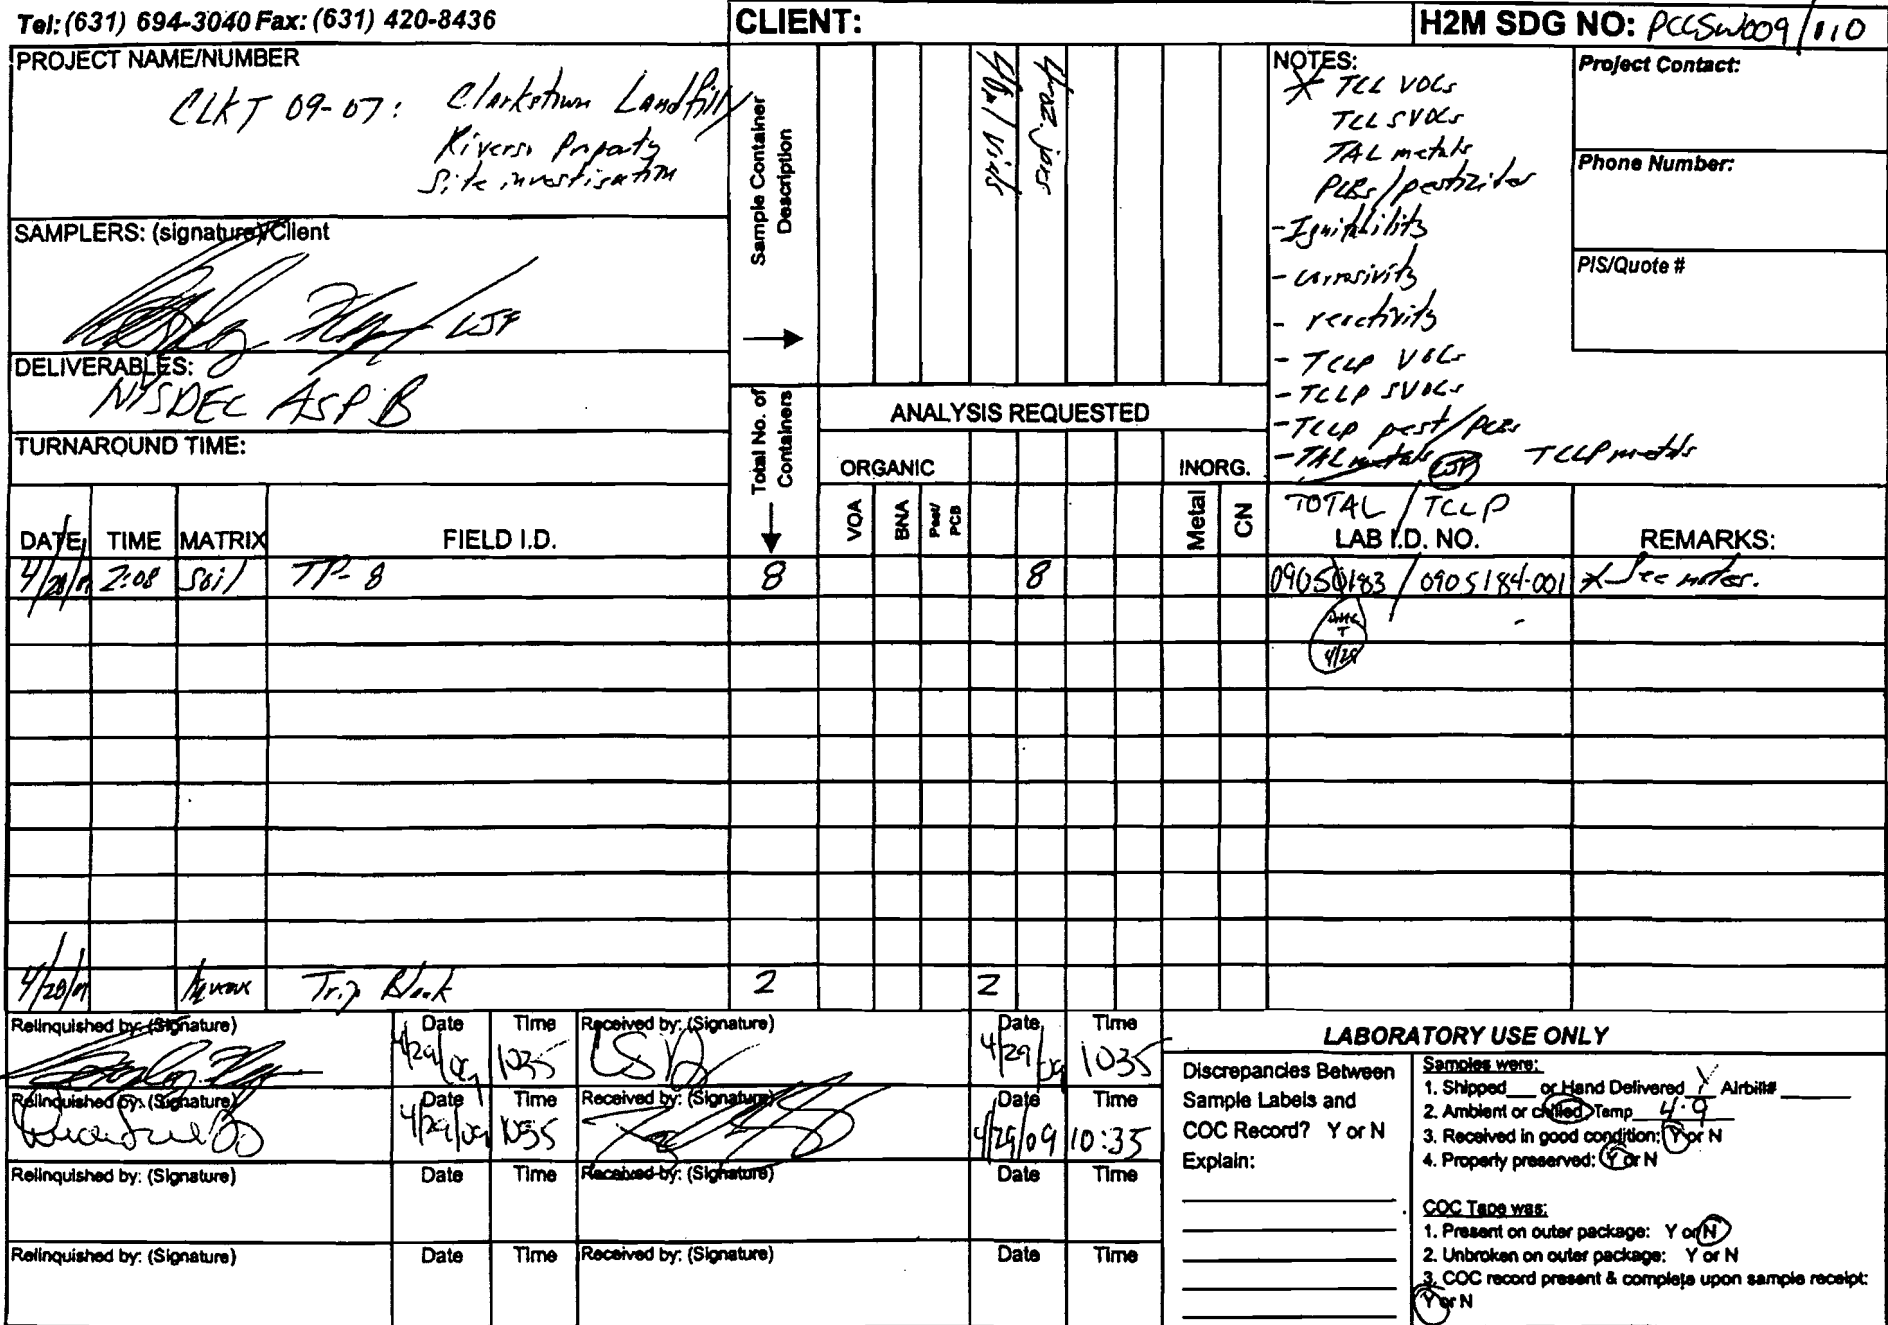 Tel: (631) 694-3040 Fax: (631) 420-8436
CLIENT:
H2M SDG NO: PCCSW009/110
PROJECT NAME/NUMBER
CLKT 09-07: Clarkstown Landfill
Riverso Property
Site investigation
SAMPLERS: (signature)/Client
LJF
DELIVERABLES:
NYSDEC ASP B
TURNAROUND TIME:
Sample Container
Description
40ml vials
4-oz. jars
Total No. of
Containers
ANALYSIS REQUESTED
ORGANIC
INORG.
VOA
BNA
Pest/
PCB
Metal
CN
NOTES:
* TCL VOCs
TCL SVOCs
TAL metals
PCBs/pesticides
- Ignitability
- corrosivity
- reactivity
- TCLP VOCs
- TCLP SVOCs
- TCLP pest/PCBs
- TAL metals LJF TCLP metals
Project Contact:
Phone Number:
PIS/Quote #
DATE TIME MATRIX FIELD I.D.
TOTAL / TCLP
LAB I.D. NO.
REMARKS:
4/28/09 2:08 Soil TP-8 8 8 09050183 / 0905184-001 * See notes.
4/29
4/28/09 Trip Blank 2 2
Relinquished by: (Signature) Date Time Received by: (Signature) Date Time
4/29/09 1035 4/29/09 1035
Relinquished by: (Signature) Date Time Received by: (Signature) Date Time
4/29/09 1035 4/29/09 10:35
Relinquished by: (Signature) Date Time Received by: (Signature) Date Time
Relinquished by: (Signature) Date Time Received by: (Signature) Date Time
LABORATORY USE ONLY
Discrepancies Between
Sample Labels and
COC Record? Y or N
Explain:
Samples were:
1. Shipped___ or Hand Delivered Y Airbill# ______
2. Ambient or chilled, Temp 4.9
3. Received in good condition: Y or N
4. Properly preserved: Y or N
COC Tape was:
1. Present on outer package: Y or N
2. Unbroken on outer package: Y or N
3. COC record present & complete upon sample receipt:
Y or N